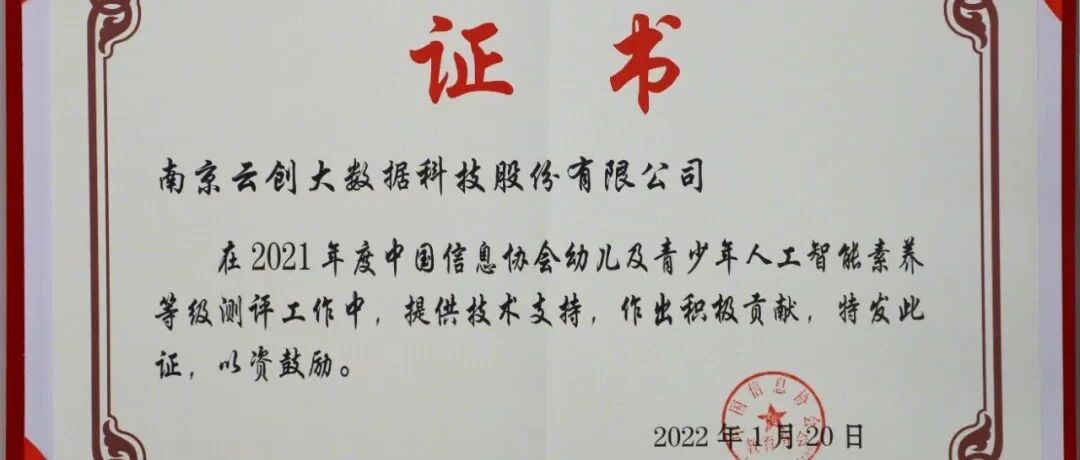 证 书
南京云创大数据科技股份有限公司
在2021年度中国信息协会幼儿及青少年人工智能素养
等级测评工作中，提供技术支持，作出积极贡献，特发此
证，以资鼓励。
国信息协会
教育
2022年1月20日